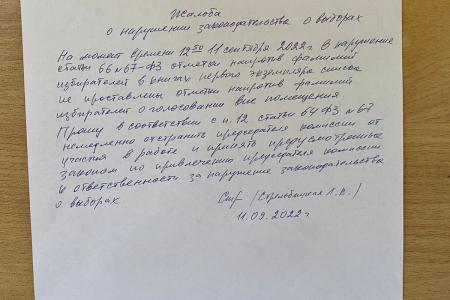 Жалоба
о нарушении законодательства о выборах
На момент времени 12 50 11 сентября 2022 г. в нарушение
статьи 66 № 67-ФЗ отметки напротив фамилий
избирателей в книгах первого экземпляра списка
не проставлены отметки напротив фамилий
избирателей о голосовании вне помещения
Прошу в соответствии с п. 12 статьи 64 ФЗ № 67
немедленно отстранить председателя комиссии от
участия в работе и принять предусмотренные
законом по привлечению председателя комиссии
к ответственности за нарушение законодательства
о выборах.
(Стрелбицкая Л.В.)
11.09.2022 г.